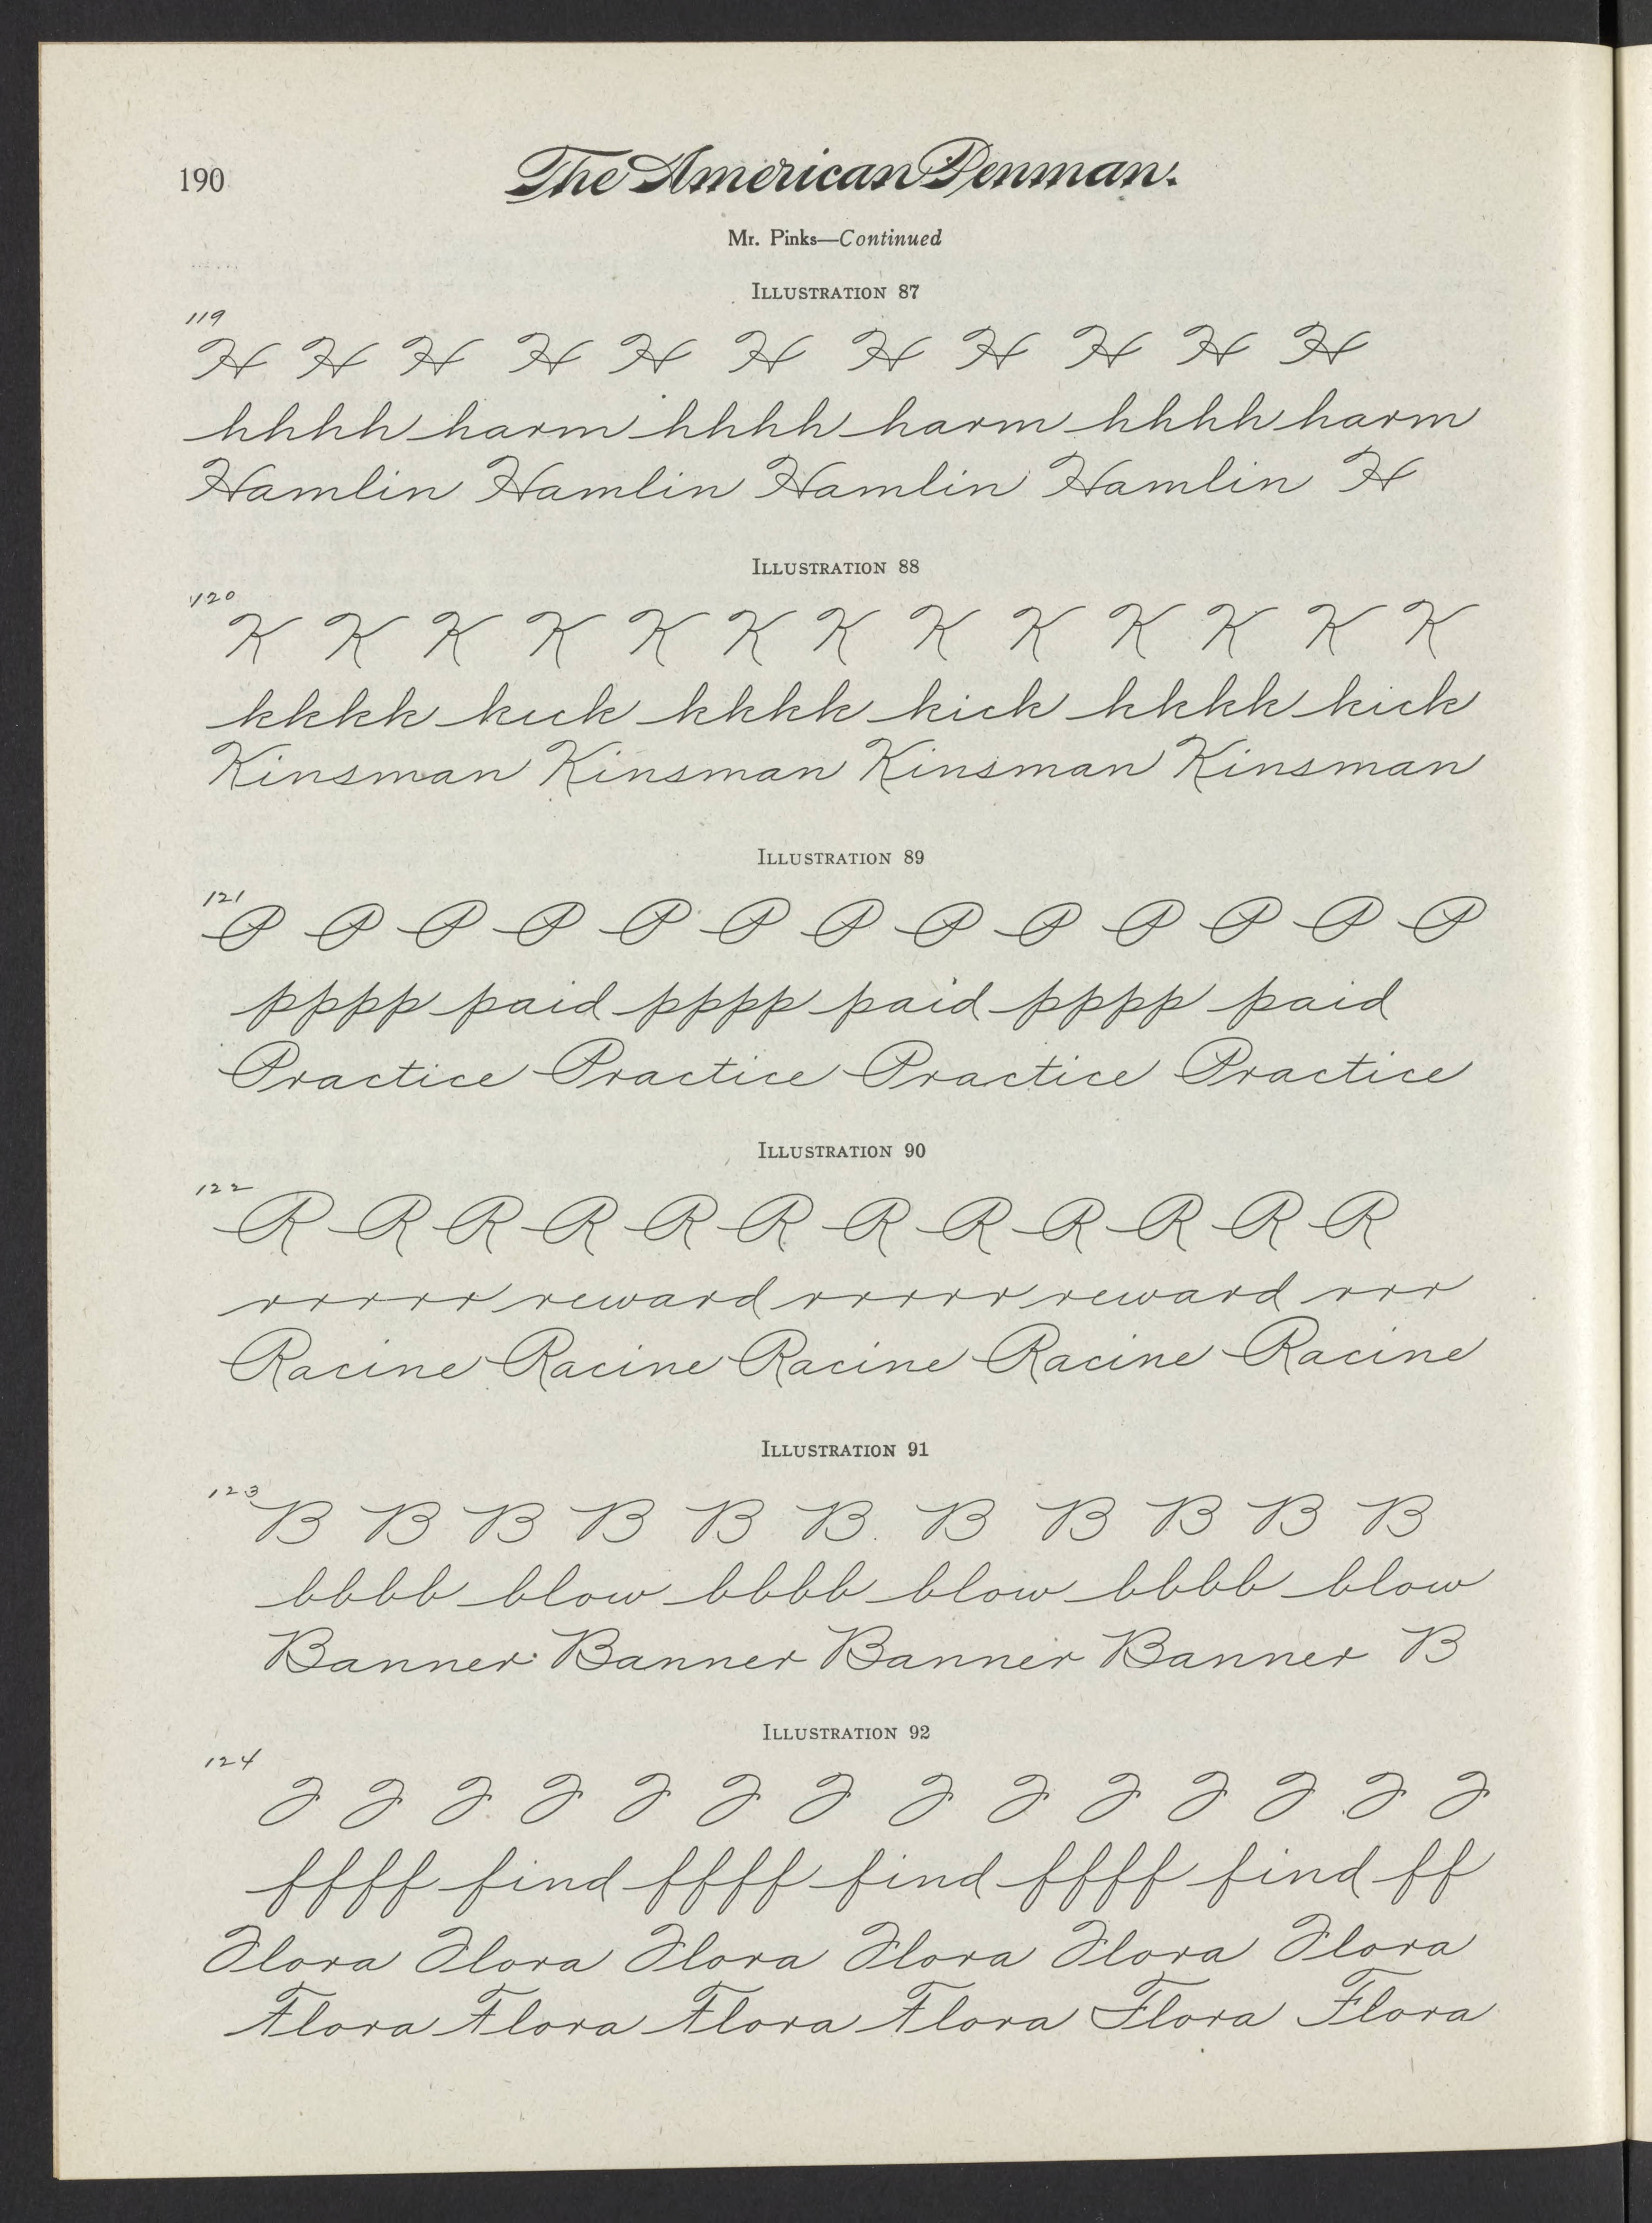 190
The American Penman.
Mr. Pinks—Continued
ILLUSTRATION 87
119
H H H H H H H H H H H
hhhh harm hhhh harm hhhh harm
Hamlin Hamlin Hamlin Hamlin H
ILLUSTRATION 88
120
K K K K K K K K K K K K K
kkkk kick kkkk kick kkkk kick
Kinsman Kinsman Kinsman Kinsman
ILLUSTRATION 89
121
P P P P P P P P P P P P P
pppp paid pppp paid pppp paid
Practice Practice Practice Practice
ILLUSTRATION 90
122
R R R R R R R R R R R R
rrrrr reward rrrrr reward rrr
Racine Racine Racine Racine Racine
ILLUSTRATION 91
123
B B B B B B B B B B B
bbbb blow bbbb blow bbbb blow
Banner Banner Banner Banner B
ILLUSTRATION 92
124
F F F F F F F F F F F F F F
ffff find ffff find ffff find ff
Flora Flora Flora Flora Flora Flora
Flora Flora Flora Flora Flora Flora